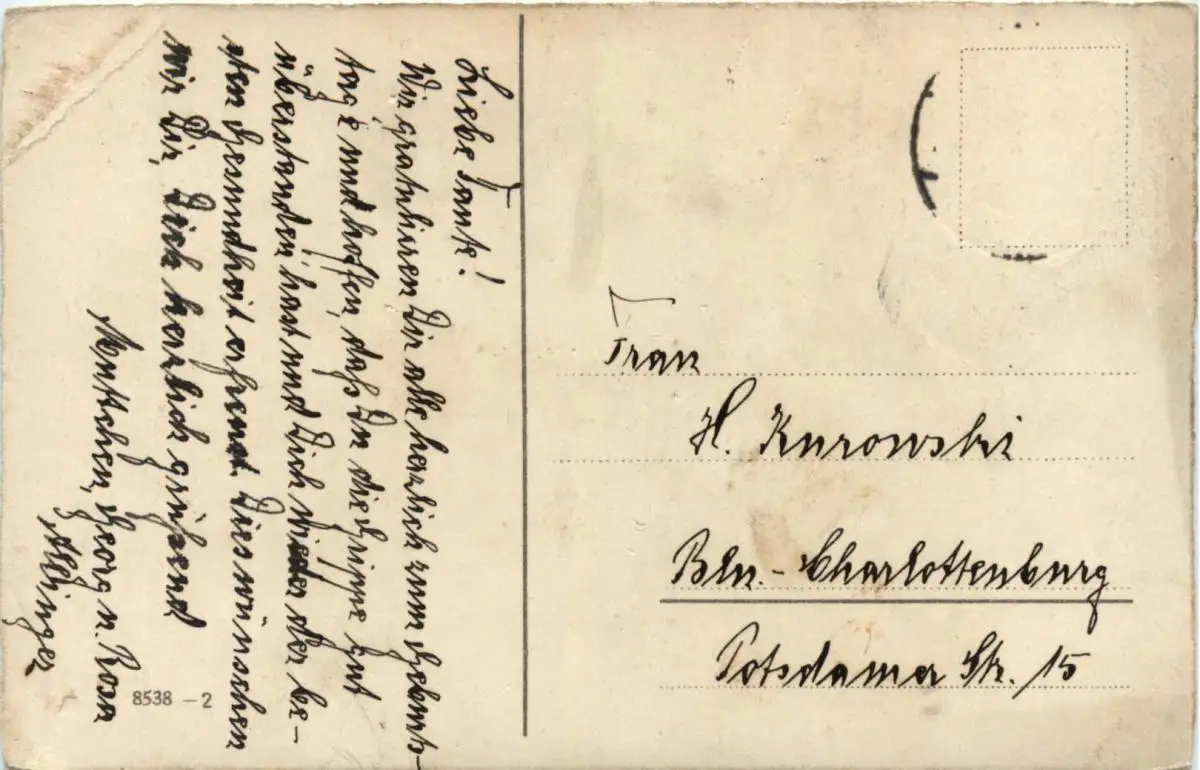 Liebe Tante!
Wir gratulieren Dir alle herzlich zum Geburts-
tage und hoffen, daß Du die Grippe gut
überstanden hast und Dich wieder der be-
sten Gesundheit erfreust. Dies wünschen
wir Dir, Dich herzlich grüßend
Muttchen, Georg u. Rosa
Frau
H. Kurowski
Bln.-Charlottenburg
Potsdamer Str. 15
8538 – 2